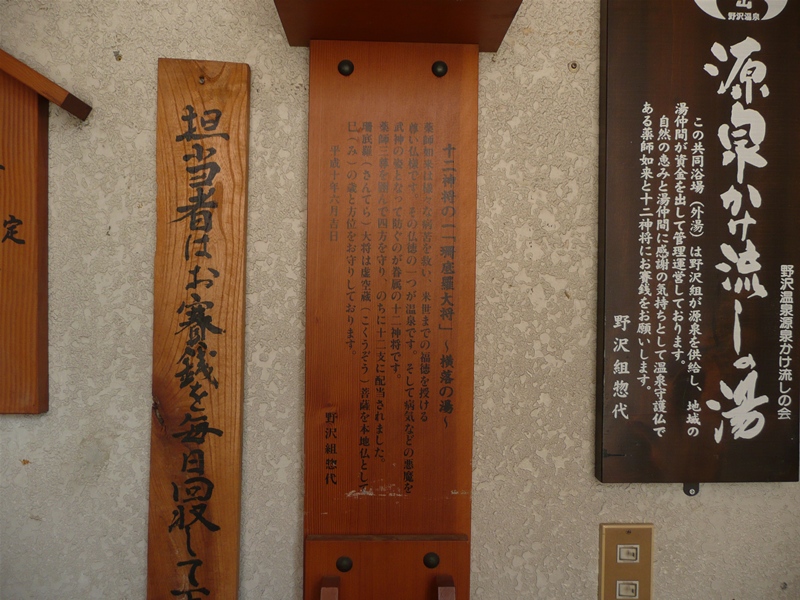 野沢温泉
源泉かけ流しの湯
野沢温泉源泉かけ流しの会
この共同浴場（外湯）は野沢組が源泉を供給し、地域の
湯仲間が資金を出して管理運営しております。
自然の恵みと湯仲間に感謝の気持ちとして温泉守護仏で
ある薬師如来と十二神将にお賽銭をお願いします。
野沢組惣代
十二神将の一「珊底羅大将」～横落の湯～
薬師如来は様々な病苦を救い、来世までの福徳を授ける
尊い仏様です。その仏徳の一つが温泉です。そして病気などの悪魔を
武神の姿となって防ぐのが眷属の十二神将です。
薬師三尊を囲んで四方を守り、のちに十二支に配当されました。
珊底羅（さんてら）大将は虚空蔵（こくうぞう）菩薩を本地仏とし
巳（み）の歳と方位をお守りしております。
平成十年六月吉日
野沢組惣代
担当者はお賽銭を毎日回収して
定